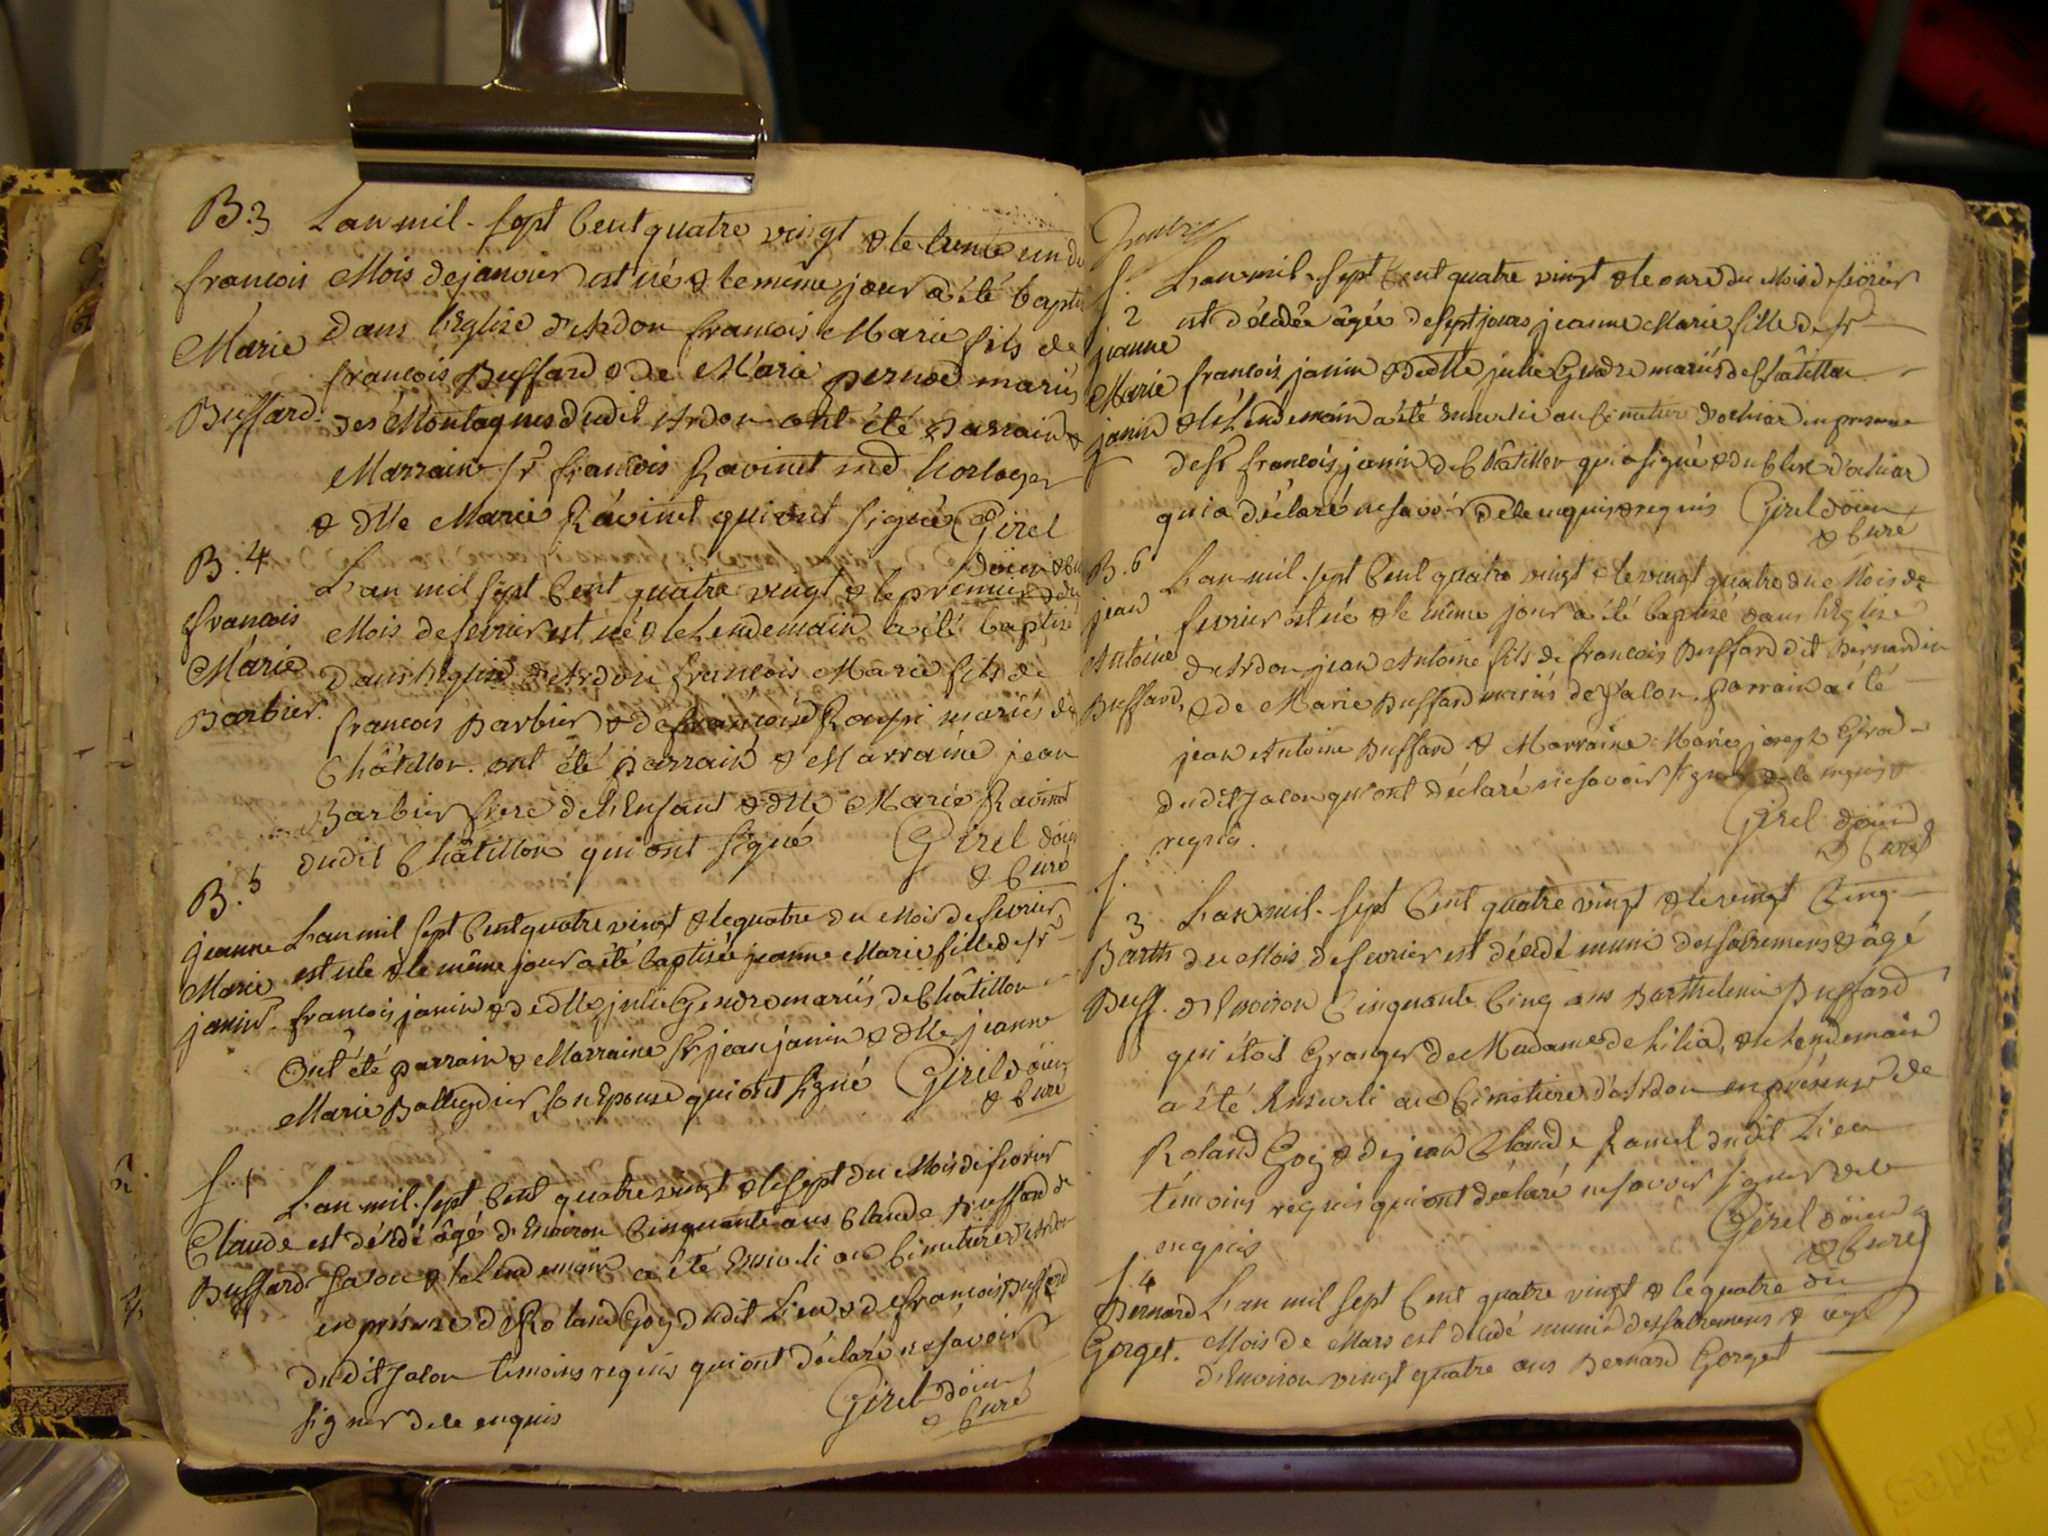 B.3
françois
Marie
Buffard.
L'an mil-sept Cent quatre vingt & le trente un du
Mois de janvier est né & le même jour a été baptisé
dans l'Eglise d'Ardon françois Marie fils de
françois Buffard & de Marie pernod mariés
des Montagnes dudit Ardon ont été parrain &
Marraine Sr françois Ravinet md horloger
& Dlle Marie Ravinet qui ont signé Girel
doïen & Curé
B.4
françois
Marie
Barbier.
L'an mil sept Cent quatre vingt & le premier du
Mois de fevrier est né & le Lendemain a été baptisé
dans l'Eglise d'Ardon françois Marie fils de
françois Barbier & de françoise mariés de
Châtillon. ont été parrain & Marraine jean
Barbier frere de l'Enfant & Dlle Marie Ravinet
dudit Châtillon qui ont signé Girel doïen
& Curé
B.5
jeanne
Marie
janin.
L'an mil sept Cent quatre vingt & le quatre du Mois de fevrier
est née & le même jour a été baptisée jeanne Marie fille de Sr
françois janin & de Dlle julie Gendre mariés de Châtillon
Ont été parrain & Marraine Sr jean janin & Dlle jeanne
Marie son Epouse qui ont signé Girel doïen
& Curé
S.1
Claude
Buffard
L'an mil-sept Cent quatre vingt & le sept du Mois de fevrier
est décédé âgé d'Environ Cinquante ans Claude Buffard de
Jalon & le Lendemain a été Enseveli au Cimetiere d'Ardon
en présence de Roland Goy dudit Lieu & de françois Buffard
dudit Jalon témoins requis qui ont déclaré ne savoir
signer de ce enquis Girel doïen
& Curé
S.
2
jeanne
Marie
janin
L'an mil-sept Cent quatre vingt & le onze du Mois de fevrier
est décédée âgée de sept jours jeanne Marie fille de Sr
françois janin & de Dlle julie Gendre mariés de Châtillon
& le Lendemain a été Enseveli au Cimetiere d'ochiaz en presence
de Sr françois janin de Châtillon qui a signé & du Clerc d'ochiaz
qui a déclaré ne savoir de ce enquis & requis Girel doïen
& Curé
B.6
jean
Antoine
Buffard.
L'an mil-sept Cent quatre vingt & le vingt quatre du Mois de
fevrier est né & le même jour a été baptisé dans l'Eglise
d'Ardon jean Antoine fils de françois Buffard dit Bernardin
& de Marie Buffard mariés de Jalon. parrain a été
jean Antoine Buffard & Marraine Marie joseph
dudit Jalon qui ont déclaré ne savoir signer de ce enquis &
requis. Girel doïen
& Curé
S.
3
Barth
Buff.
L'an mil-sept Cent quatre vingt & le vingt Cinq
du Mois de fevrier est décédé muni des sacremens & âgé
d'Environ Cinquante Cinq ans Barthelemi Buffard
qui étoit Granger de Madame de Lilia, & le Lendemain
a été Enseveli au Cimetiere d'Ardon en présence de
Roland Goy & de jean Claude Ramel dudit Lieu
témoins requis qui ont déclaré ne savoir signer de ce
enquis Girel doïen
& Curé
S.4
Bernard
Gorget.
L'an mil sept Cent quatre vingt & le quatre du
Mois de Mars est décédé muni des sacremens & âgé
d'Environ vingt quatre ans Bernard Gorget